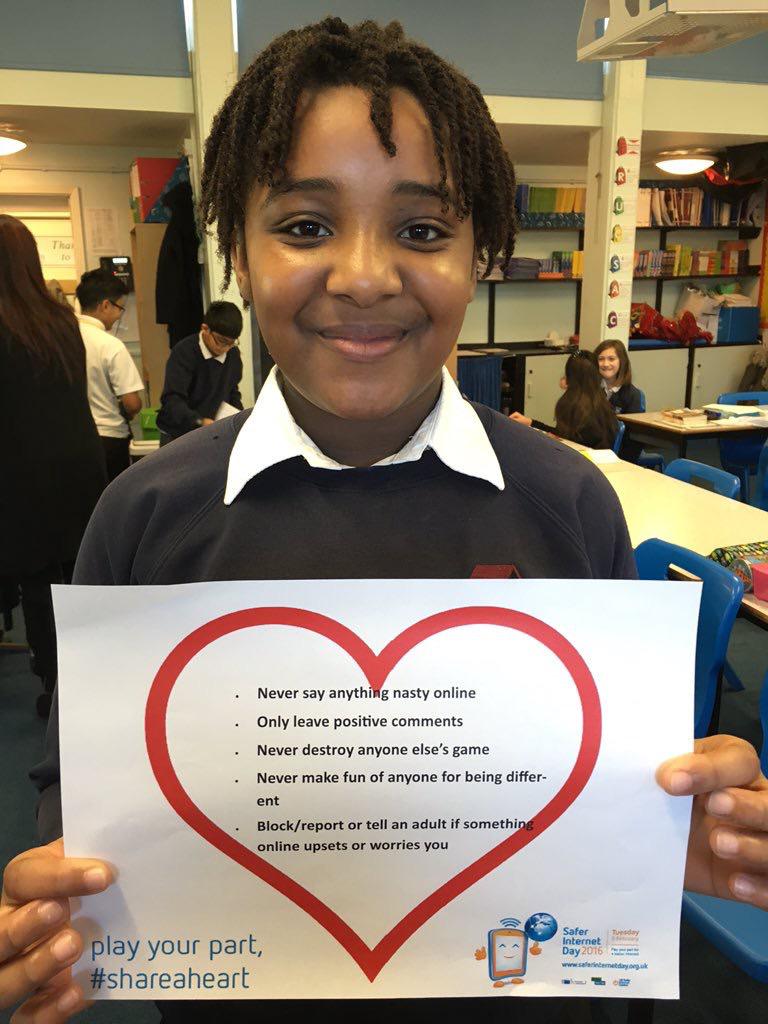 Than
to
C
A
S
U
R
• Never say anything nasty online
• Only leave positive comments
• Never destroy anyone else's game
• Never make fun of anyone for being differ-
ent
• Block/report or tell an adult if something
online upsets or worries you
play your part,
#shareaheart
Safer
Internet
Day 2016
Tuesday
9 February
Play your part for
a better internet!
www.saferinternetday.org.uk